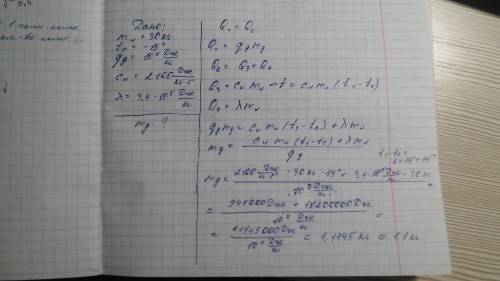 Дано:
mл = 30 кг
t0 = -15°
qд = 10⁷ Дж/кг
cл = 2100 Дж/кг·°С
λ = 3,4·10⁵ Дж/кг
mд - ?
Q1 = Q2
Q1 = qд mд
Q2 = Q3 + Q4
Q3 = cл mл Δt = cл mл (t1 - t0)
Q4 = λ mл
qд mд = cл mл (t1 - t0) + λ mл
mд = cл mл (t1 - t0) + λ mл / qд
t1 - t0 =
0 + 15 = 15°
mд = 2100 Дж/кг·°С · 30 кг · 15° + 3,4·10⁵ Дж/кг · 30 / 10⁷ Дж/кг =
= 945000 Дж + 10200000 Дж / 10⁷ Дж/кг =
= 11145000 Дж / 10⁷ Дж/кг = 1,1145 кг ≈ 1,1 кг